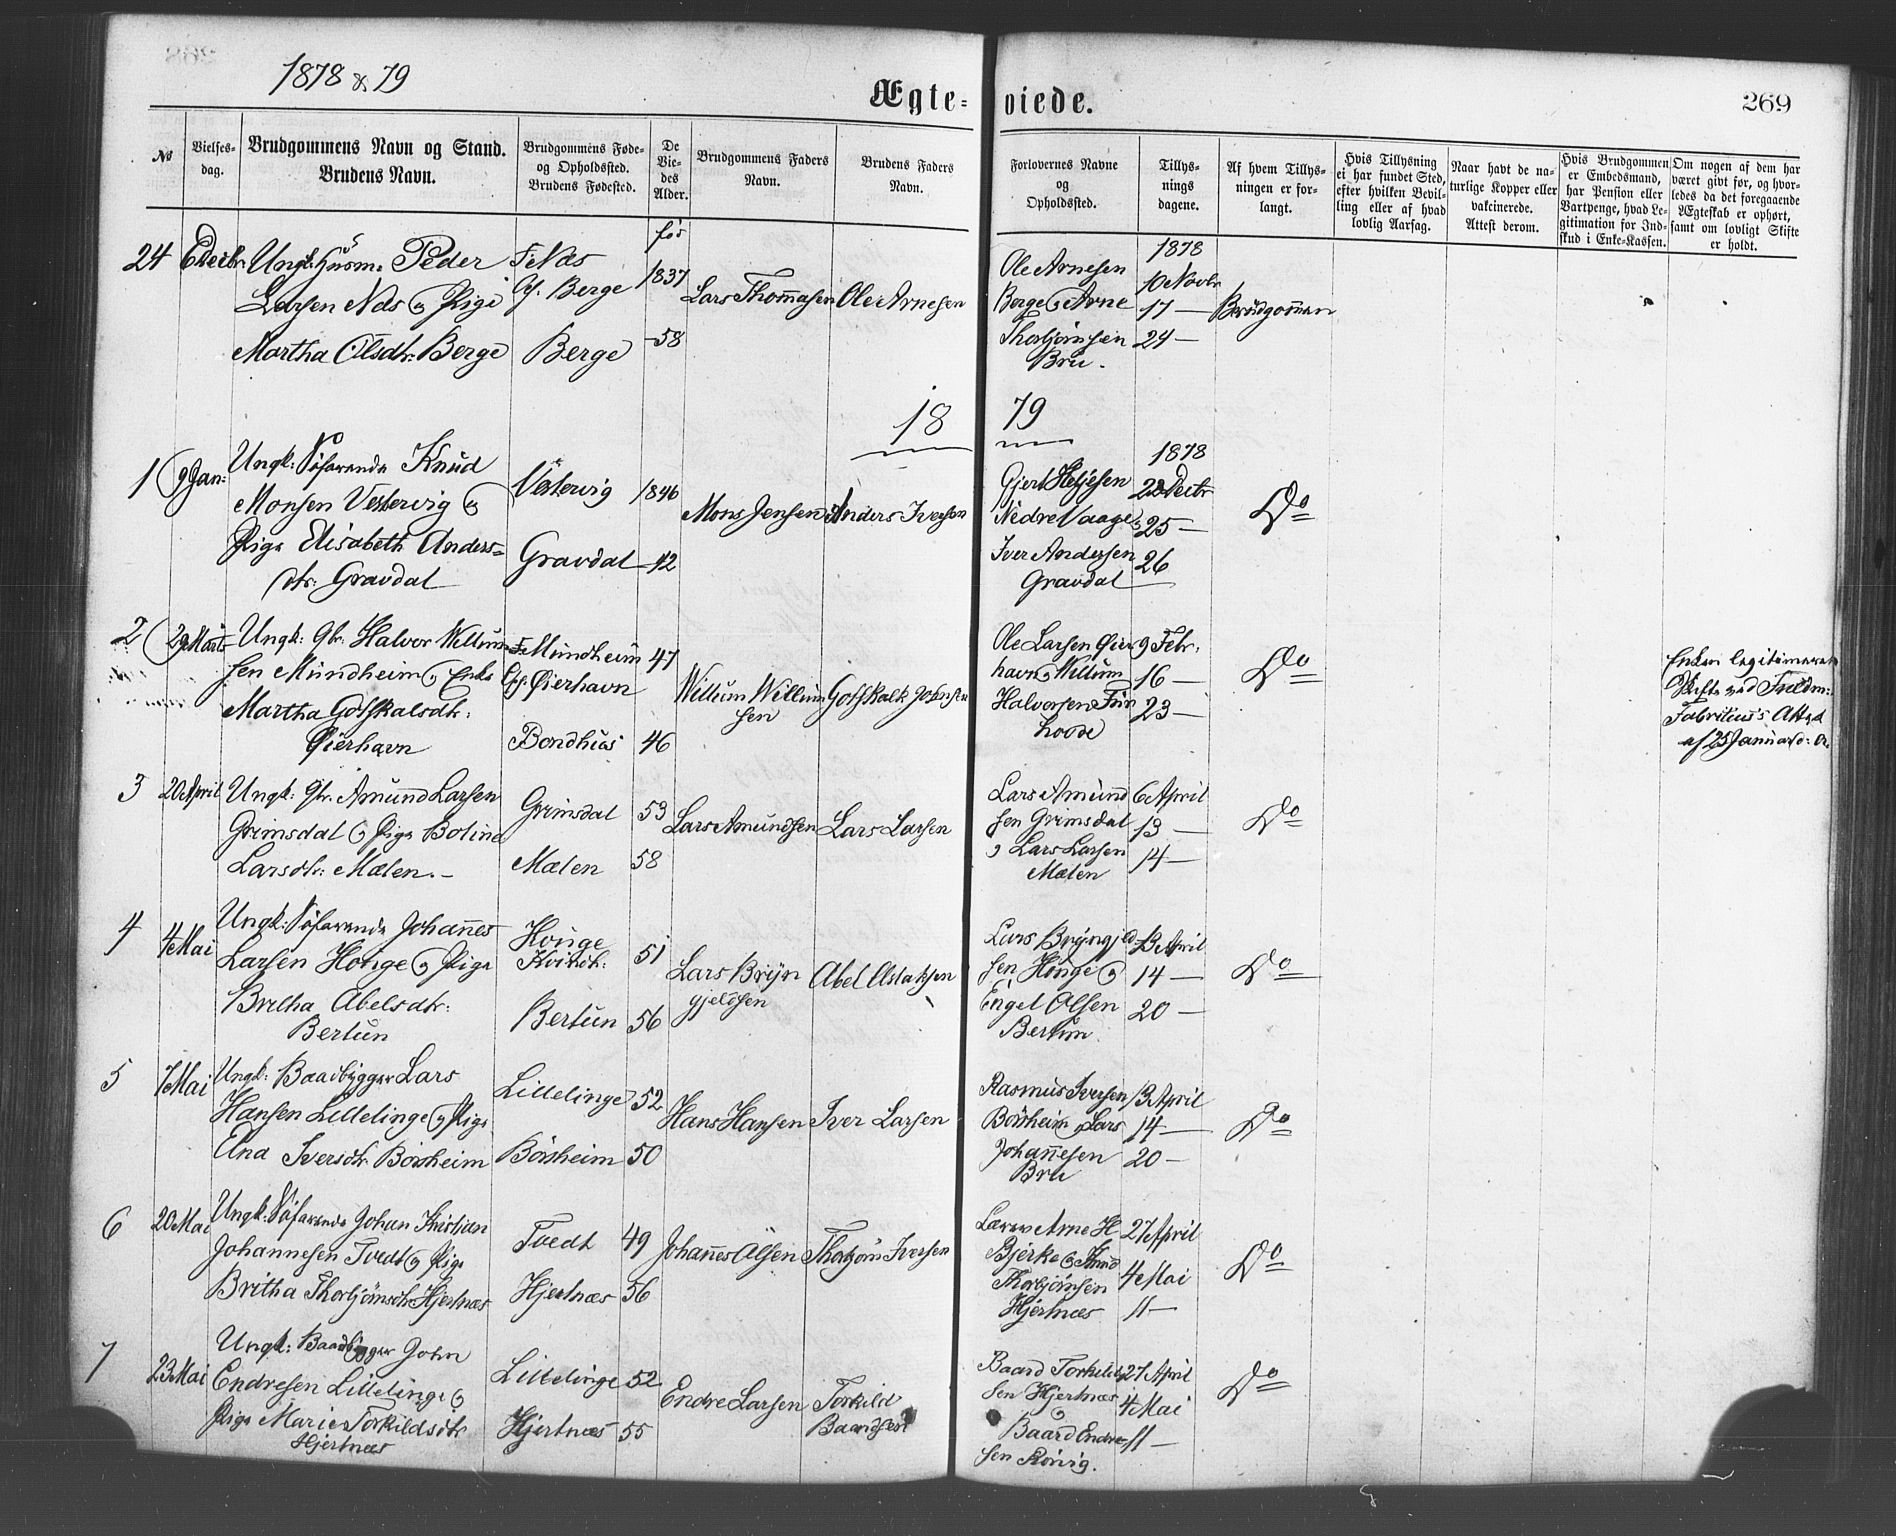 1878 & 79
Ægte=viede.
269
No
Vielses-
dag.
Brudgommens Navn og Stand.
Brudens Navn.
Brudgommens Føde-
og Opholdssted.
Brudens Fødested.
De
Vie-
des
Alder.
Brudgommens Faders
Navn.
Brudens Faders
Navn.
Forlovernes Navne
og
Opholdssted.
Tillys-
nings
dagene.
Af hvem Tillys-
ningen er for-
langt.
Hvis Tillysning
ei har fundet Sted,
efter hvilken Bevil-
ling eller af hvad
lovlig Aarsag.
Naar havt de na-
turlige Kopper eller
vakcinerede.
Attest derom.
Hvis Brudgommen
er Embedsmand,
har Pension eller
Vartpenge, hvad Le-
gitimation for Ind-
skud i Enke-Kassen.
Om nogen af dem har
været givt før, og hvor-
ledes da det foregaaende
Ægteskab er ophørt,
samt om lovligt Skifte
er holdt.
24
Ungk: Husm. Peder
Larsen Næs og Pige
Martha Olsdtr: Berge
F. Næs
O. Berge
Berge
før
1837
-58
Lars Thommasen
Ole Arnesen
Ole Arnesen
Berge og Arne
Thorbjørnsen
Bru.
1878
10 Novbr
17 —
24 —
Brudgommen
18 79
1
9 Jan:
Ungk: Søfarende Knud
Monsen Vestervig og
Pige Elisabeth Anders=
dtr: Gravdal
Vestervig
Gravdal
1846
-42
Mons Jensen
Anders Iversen
Gjert Helgesen
Nedre Vaage og
Iver Andersen
Gravdal
1878
Decbr
25 —
26
Do
2
Marts
Ungk: Gbr: Halvor Willum=
sen Mundheim og Enke
Martha Gotskalsdtr:
Øierhavn
F. Mundheim
O. Øierhavn
Bondhus
47
46
Willum Willum
sen
Gotskalk Johnsen
Ole Larsen Øier
havn og Willum
Halvorsen
9 Febr.
16 —
23 —
Do
Enken legitimeret
Skifte ved Fuldm:
Fabritius's Attest
af 25 Januar
3
20 April
Ungk: Gbr. Amund Larsen
Grimsdal og Pige Bolina
Larsdtr: Mælen. —
Grimsdal
Mælen
53
58
Lars Amundsen
Lars Larsen
Lars Amund
sen Grimsdal
og Lars Larsen
Mælen
6 April
13 —
14 —
Do
4
4 Mai
Ungk: Søfarende Johannes
Larsen Houge og Pige
Britha Abelsdtr:
Bertun
Houge
Bertun
51
56
Lars Bryn
gjeldsen
Abel Aslaksen
Lars Bryngjeld
sen Houge og
Engel Olsen
Bertun
13 April
14 —
20 —
Do
5
7 Mai
Ungk: Baadbygger Lars
Hansen Lillelinge og Pige
Ana Iversdtr Børsheim
Lillelinge
Børsheim
52
50
Hans Hansen
Iver Larsen
Rasmus Iversen
Børsheim og Lars
Johannesen
Bru
13 April
14 —
20 —
Do
6
20 Mai
Ungk: Søfarende Johan Kristian
Johannesen Tvedt og Pige
Britha Thorbjørnsdtr Hjertnæs
Tvedt
Hjertnæs
49
56
Johannes Olsen
Thorbjørn Iversen
Lærer Arne H
Bjerke og Knud
Thorbjørnsen
Hjertnæs
27 April
4 Mai
11 —
Do
7
23 Mai
Ungk: Baadbygger John
Endresen Lillelinge og
Pige Marie Torkildsdtr
Hjertnæs
Lillelinge
Hjertnæs
52
55
Endre Larsen
Torkild
Baardsen
Baard Torkild
sen Hjertnæs
og
Baard Endre
sen Rørvig.
27 April
4 Mai
11 —
Do